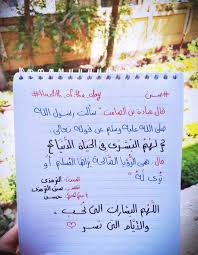 #Hadith of the day #حسن
قال عبادة بن الصامت: سألت رسول الله
صلى الله عليه وسلم عن قوله تعالى
لهم البشرى في الحياة الدنيا
قال هي الرؤيا الصالحة يراها المسلم أو
ترى له"
الترمذي
حسن
اللهم البشارات التي تحب
والأيام التي تسر ♡